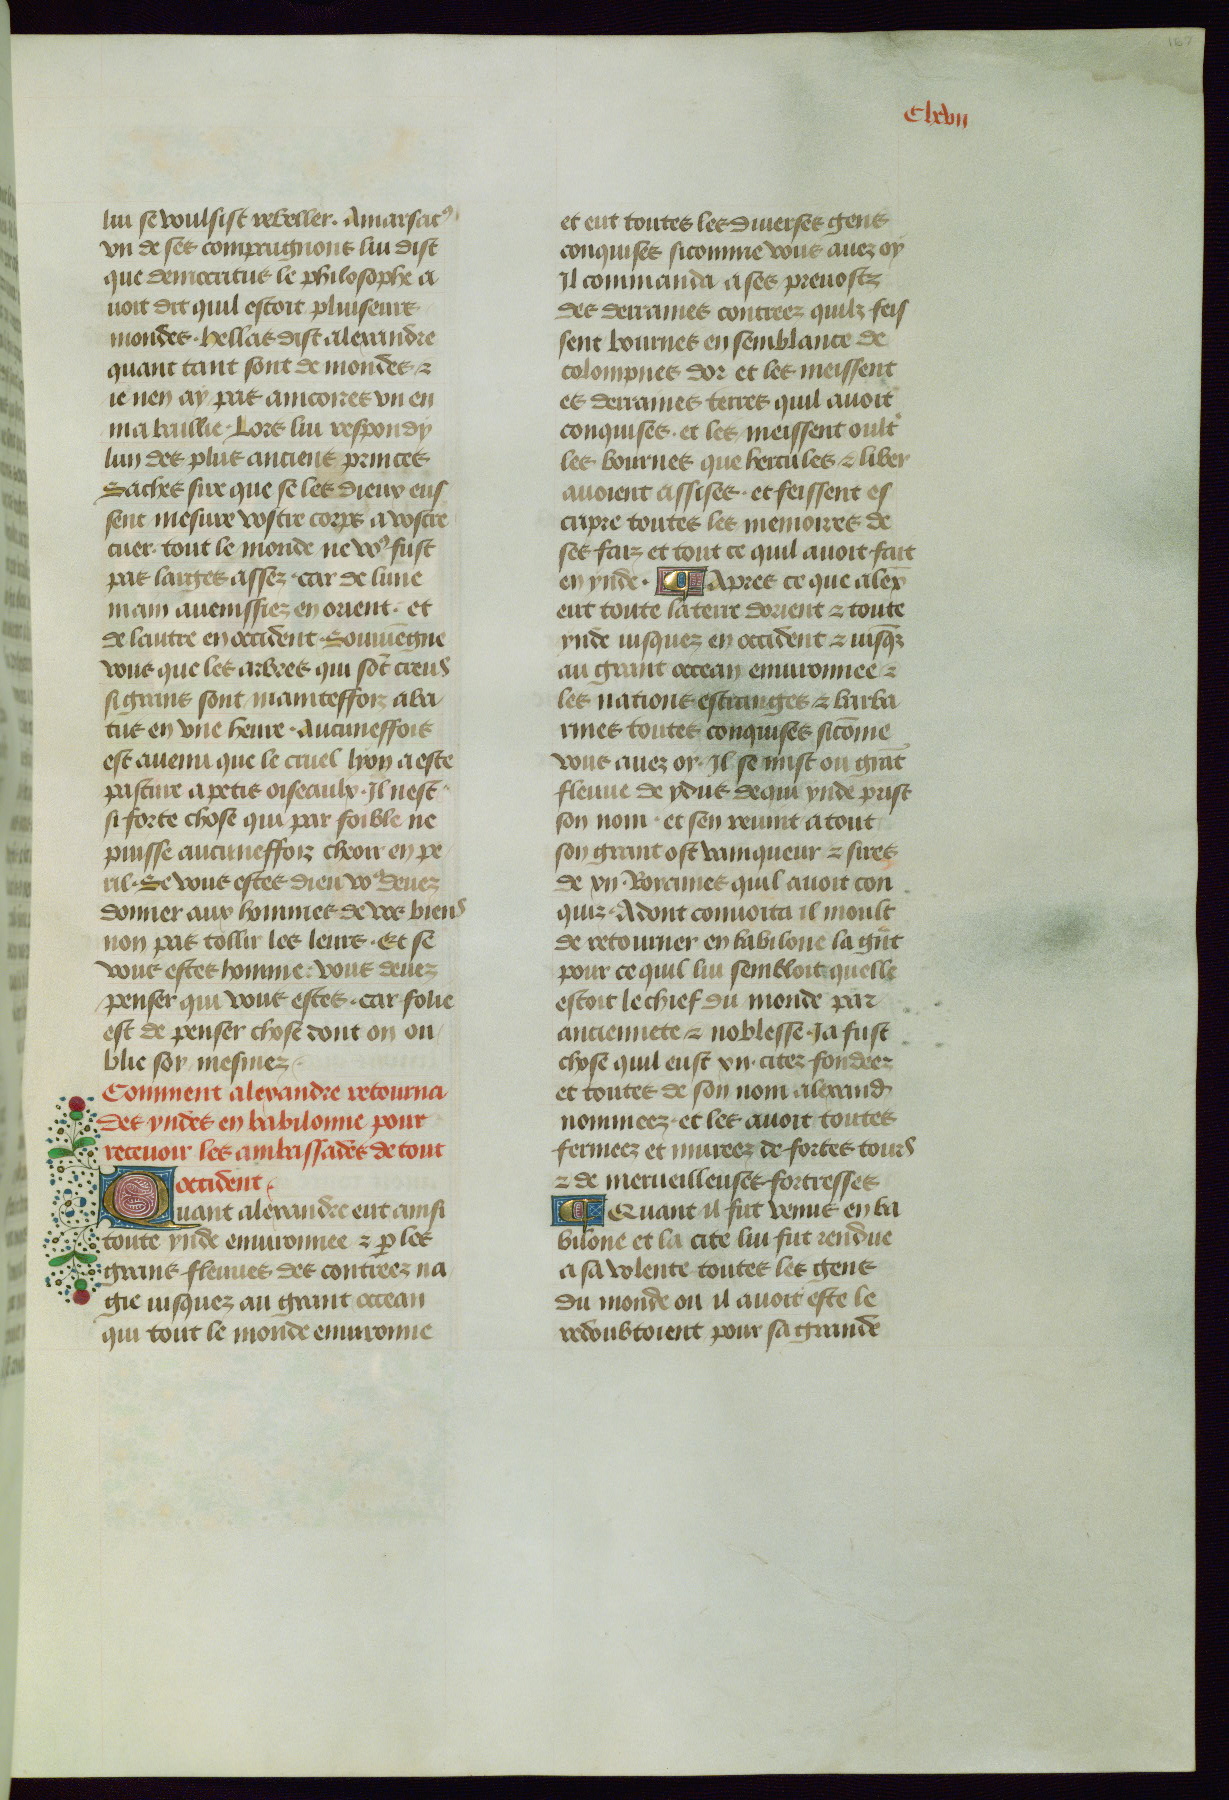 167
Clxvii
lui se voulsist rebeller. Amarsac9
vn de ses compaignons lui dist
que democritus le philosophe a
uoit dit quil estoit pluiseurs
mondes. hellas dist alexandre
quant tant sont de mondes ⁊
ie nen ay pas ancores vn en
ma baillie. Lors lui respondy
lun des plus anciens princes
Saches sire que se les dieux eus
sent mesure vostre corps a vostre
cuer. tout le monde ne vo9 fust
pas larges assez. car de lune
main auenissiez en orient. et
de lautre en occident. Souuiēgne
vous que les arbres qui sōt creus
si grans sont maintesfoiz aba
tus en vne heure. Aucuneffois
est auenu que le cruel lyon a este
pasture a petis oiseaulx. Il nest
si forte chose qui par foible ne
puisse aucuneffoiz cheoir en pe
ril. Se vous estes dieu vo9 deuez
donner aux hommes de vos biens
non pas tollir les leurs. Et se
vous estes homme: vous deuez
penser qui vous estes. car folie
est de penser chose dont on ou
blie soy mesmez.
Comment alexandre retourna
des yndes en babilonne pour
receuoir les ambassades de tout
occident.
Quant alexandre eut ainsi
toute ynde enuironnee ⁊ ꝑ les
grans fleuues des contreez na
gie iusquez au grant occean
qui tout le monde enuironne
et eut toutes les diuerses gens
conquises sicomme vous auez oy
Il commanda a ses preuostz
des derraines contreez quilz feis
sent bournes en semblance de
colompnes dor et les meissent
es derraines terres quil auoit
conquises. et les meissent oult
les bournes que hercules ⁊ liber
auoient assises. et feissent es
cripre toutes les memoires de
ses faiz et tout ce quil auoit fait
en ynde. ¶ Apres ce que alex̄
eut toute la terre dorient ⁊ toute
ynde iusquez en occident ⁊ iusq̄z
au grant occean enuironnee ⁊
les nations estranges ⁊ barba
rines toutes conquises sicōme
vous auez oy. Il se mist ou grāt
fleuue de ydus de qui ynde prist
son nom. et sen reuint a tout
son grant ost vainqueur ⁊ sires
de xii. Roraumes quil auoit con
quiz. Adont conuoita il moult
de retourner en babilone la grāt
pour ce quil lui sembloit quelle
estoit le chief du monde par
anciennete ⁊ noblesse. Ja fust
chose quil eust xii. citez fondeez
et toutes de son nom alexand
nommeez. et les auoit toutes
fermeez et mureez de fortes tours
⁊ de merueilleuses fortresses
¶ Et quant il fut venus en ba
bilone et la cite lui fut rendue
a sa volente toutes les gens
du monde ou il auoit este le
redoubtoient pour sa grande